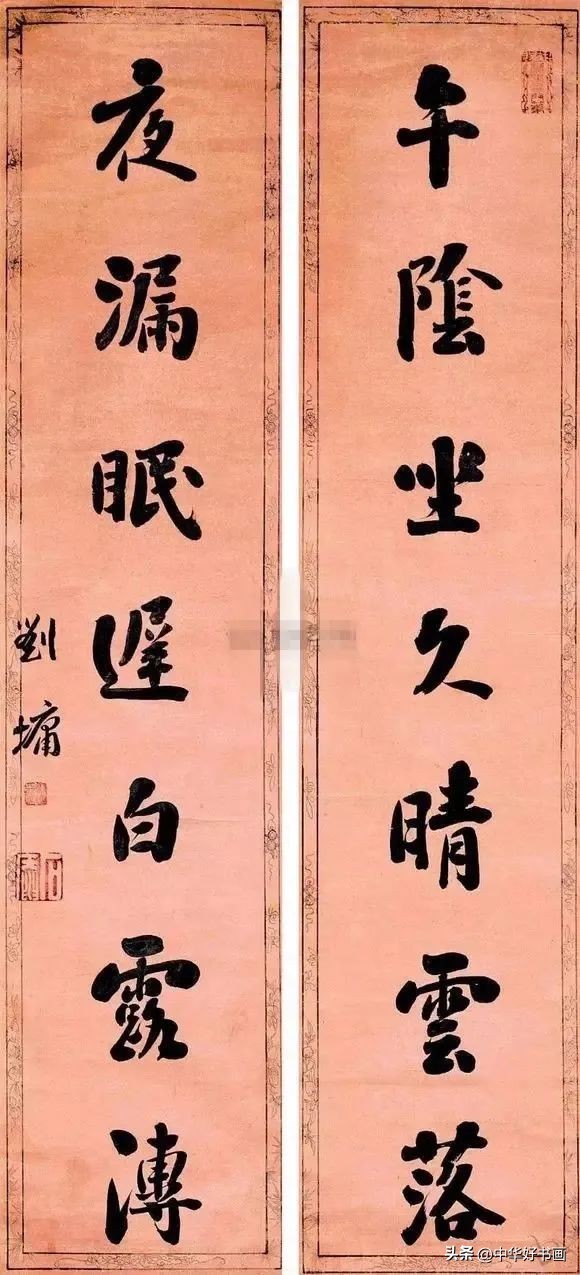 午陰坐久晴雲落
夜漏眠遲白露漙
劉墉
头条 @中华好书画